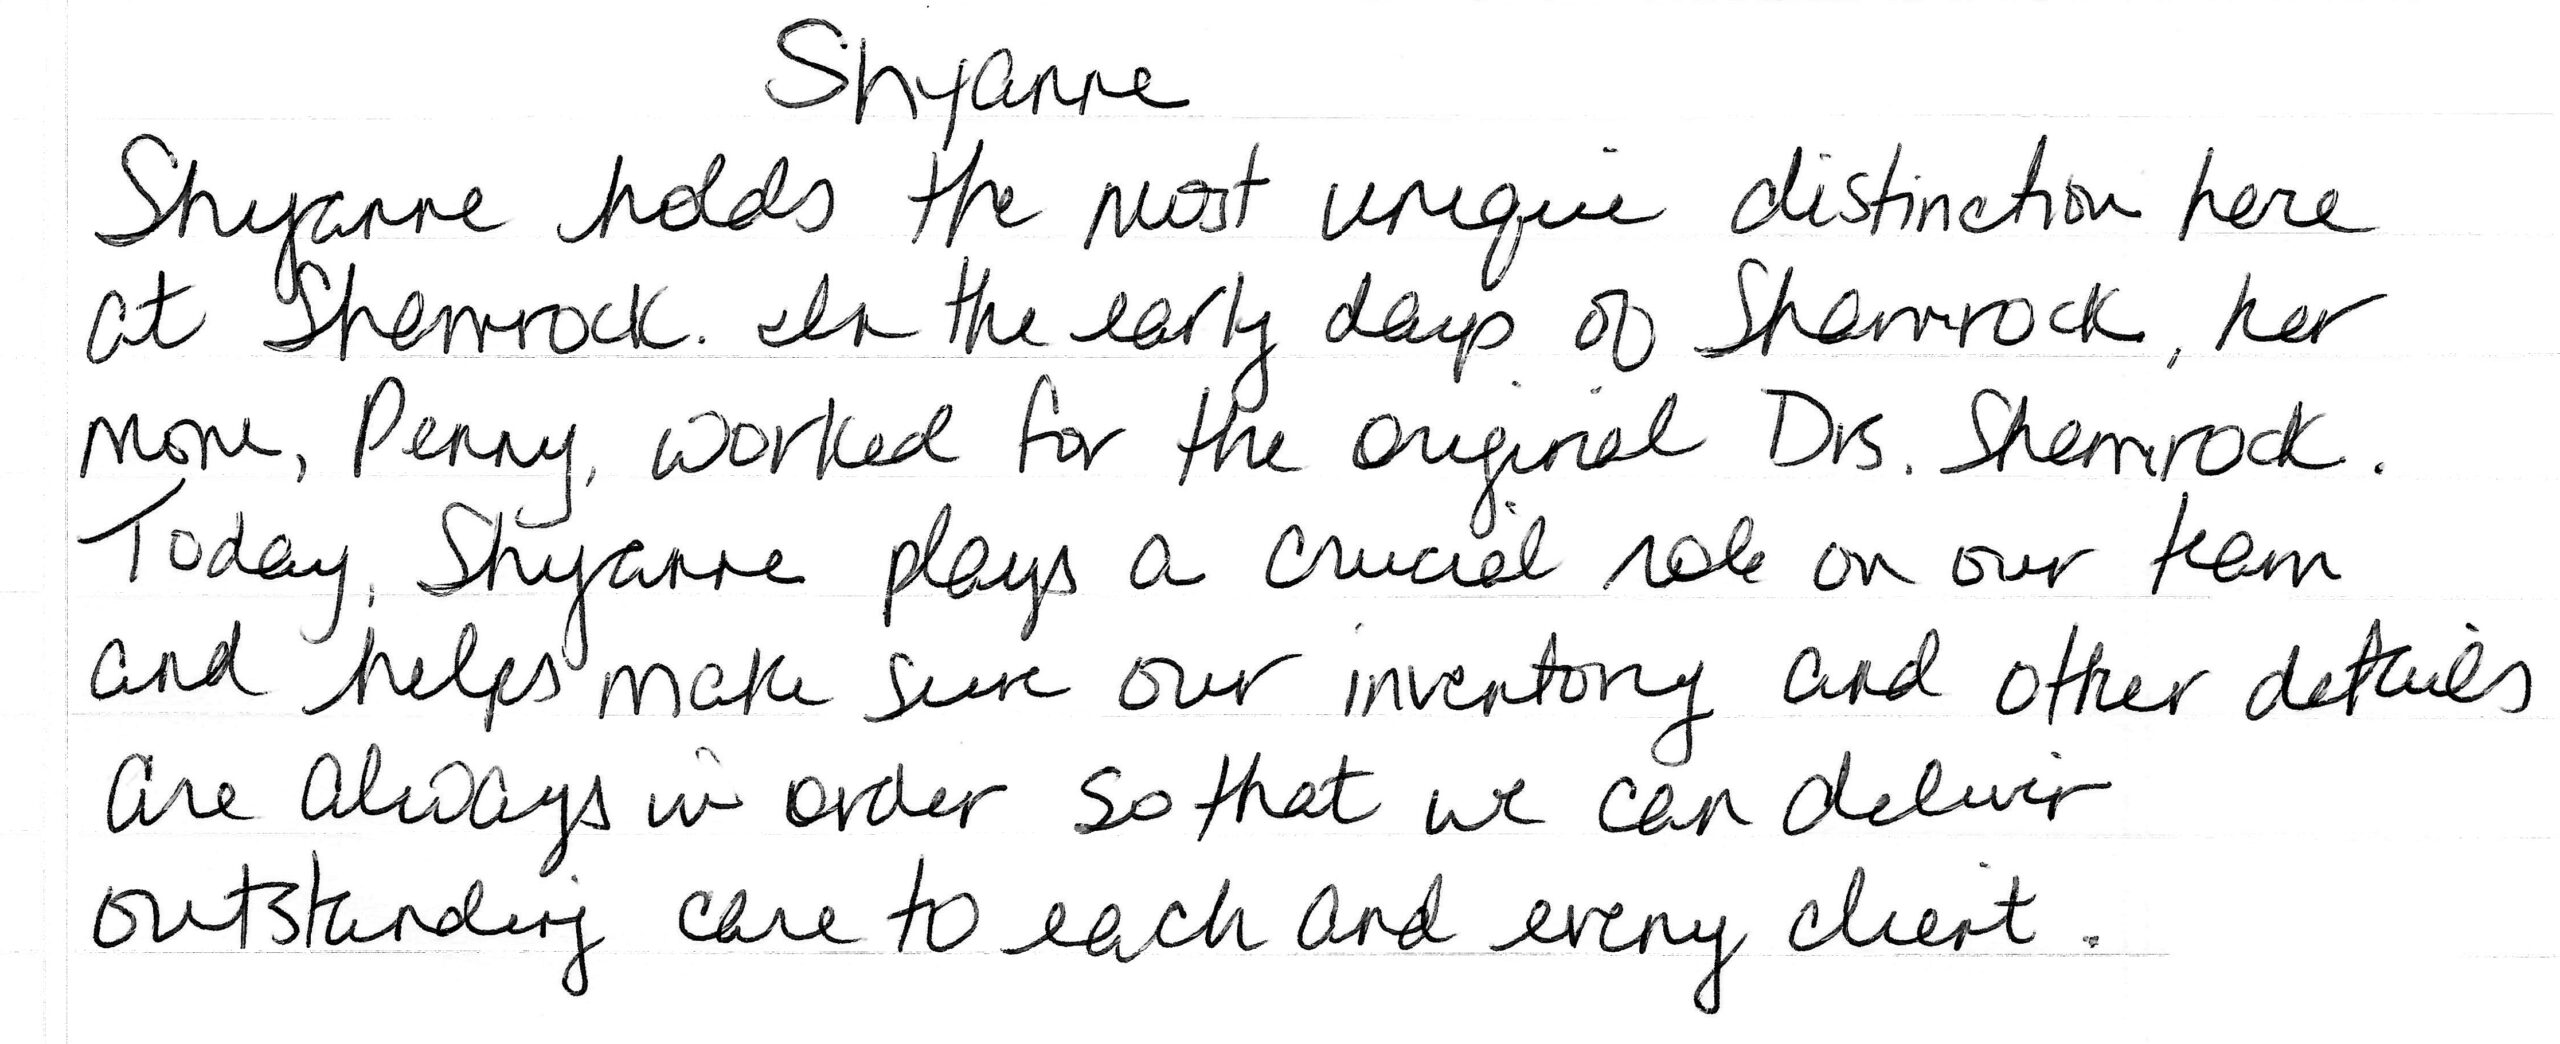 Shyanne
Shyanne holds the most unique distinction here
at Shamrock. In the early days of Shamrock, her
mom, Penny, worked for the original Drs. Shamrock.
Today, Shyanne plays a crucial role on our team
and helps make sure our inventory and other details
are always in order so that we can deliver
outstanding care to each and every client.